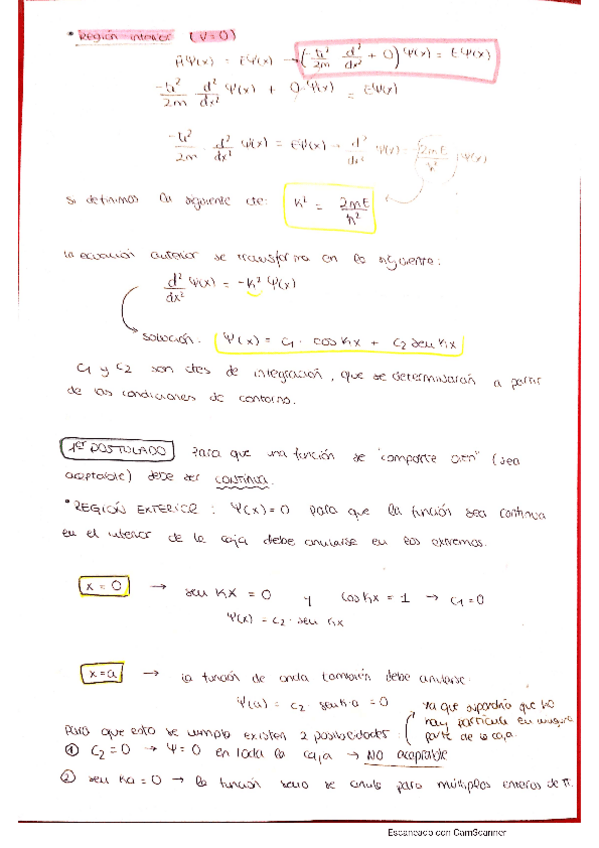 • Región interior (V=0)
ĤΨ(x) = EΨ(x) → (-ħ²/2m d²/dx² + 0) Ψ(x) = EΨ(x)
-ħ²/2m d²/dx² Ψ(x) + 0·Ψ(x) = EΨ(x)
-ħ²/2m · d²/dx² Ψ(x) = EΨ(x) → d²/dx² Ψ(x) = 2mE/ħ² Ψ(x)
Si definimos la siguiente cte: K² = 2mE/ħ²
la ecuación anterior se transforma en la siguiente:
d²/dx² Ψ(x) = -K² Ψ(x)
solución: Ψ(x) = C1 · cos Kx + C2 sen Kx
C1 y C2 son ctes de integración, que se determinarán a partir
de las condiciones de contorno.
1er POSTULADO Para que una función se "comporte bien" (sea
aceptable) debe ser continua.
• REGIÓN EXTERIOR : Ψ(x)=0 para que la función sea continua
en el interior de la caja debe anularse en los extremos.
x=0 → sen Kx = 0 y cos Kx = 1 → C1=0
Ψ(x) = C2 · sen Kx
x=a → la función de onda también debe anularse:
Ψ(a) = C2 · sen K·a = 0
ya que supondría que no
hay partícula en ninguna
parte de la caja.
Para que esto se cumpla existen 2 posibilidades:
① C2=0 → Ψ=0 en toda la caja → NO aceptable
② sen Ka = 0 → la función seno se anula para múltiplos enteros de π.
Escaneado con CamScanner